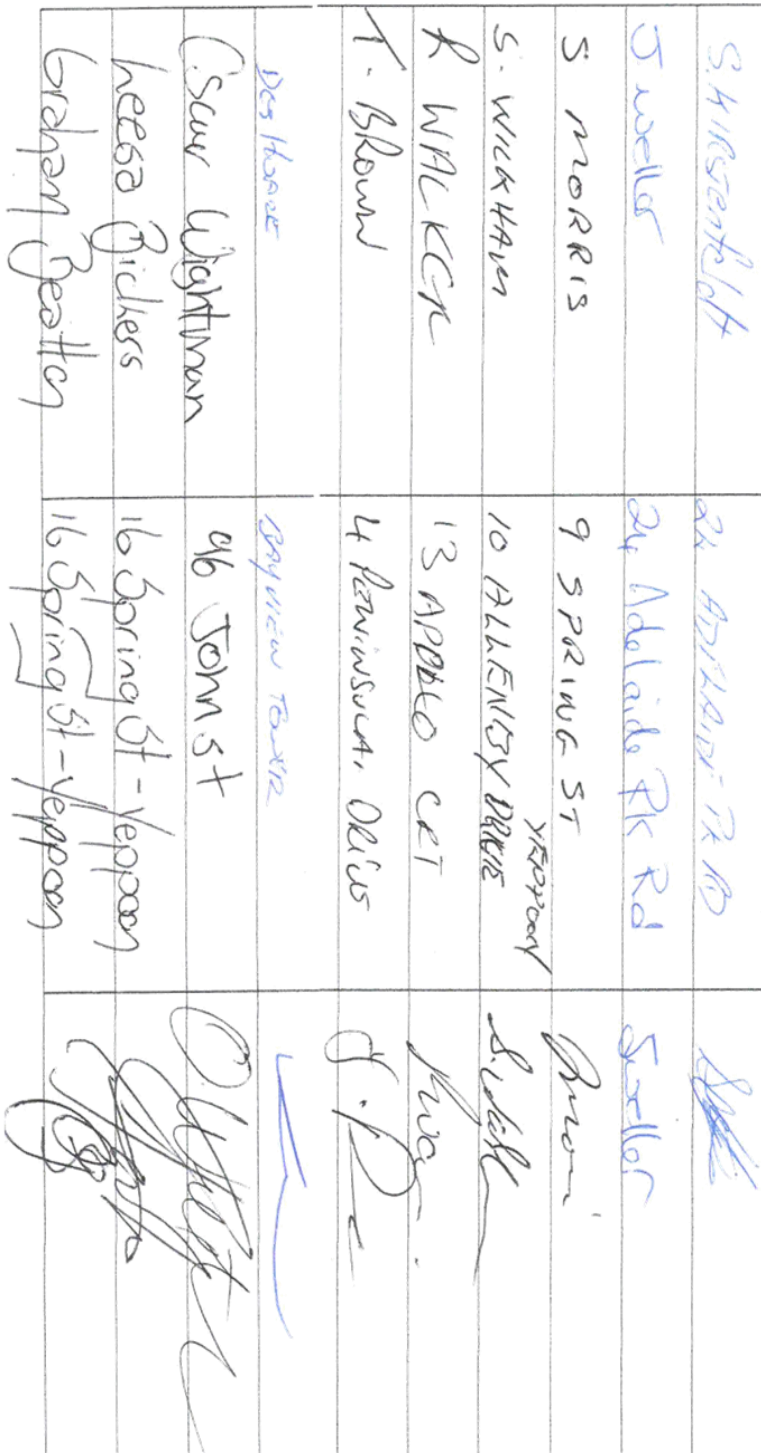 24 Adelaide Pk Rd
J weller 24 Adelaide Pk Rd Jweller
S MORRIS 9 SPRING ST
S. WICKHAM 10 ALLENBY DRIVE YEPPOON
R WALKER 13 APOLLO CRT
T. BROWN 4 PENINSULA DRIVE
BAYVIEW TOWER
Oscar Wightman 96 John st
Leesa 16 Spring St - Yeppoon
Graham Beattey 16 Spring St - Yeppoon